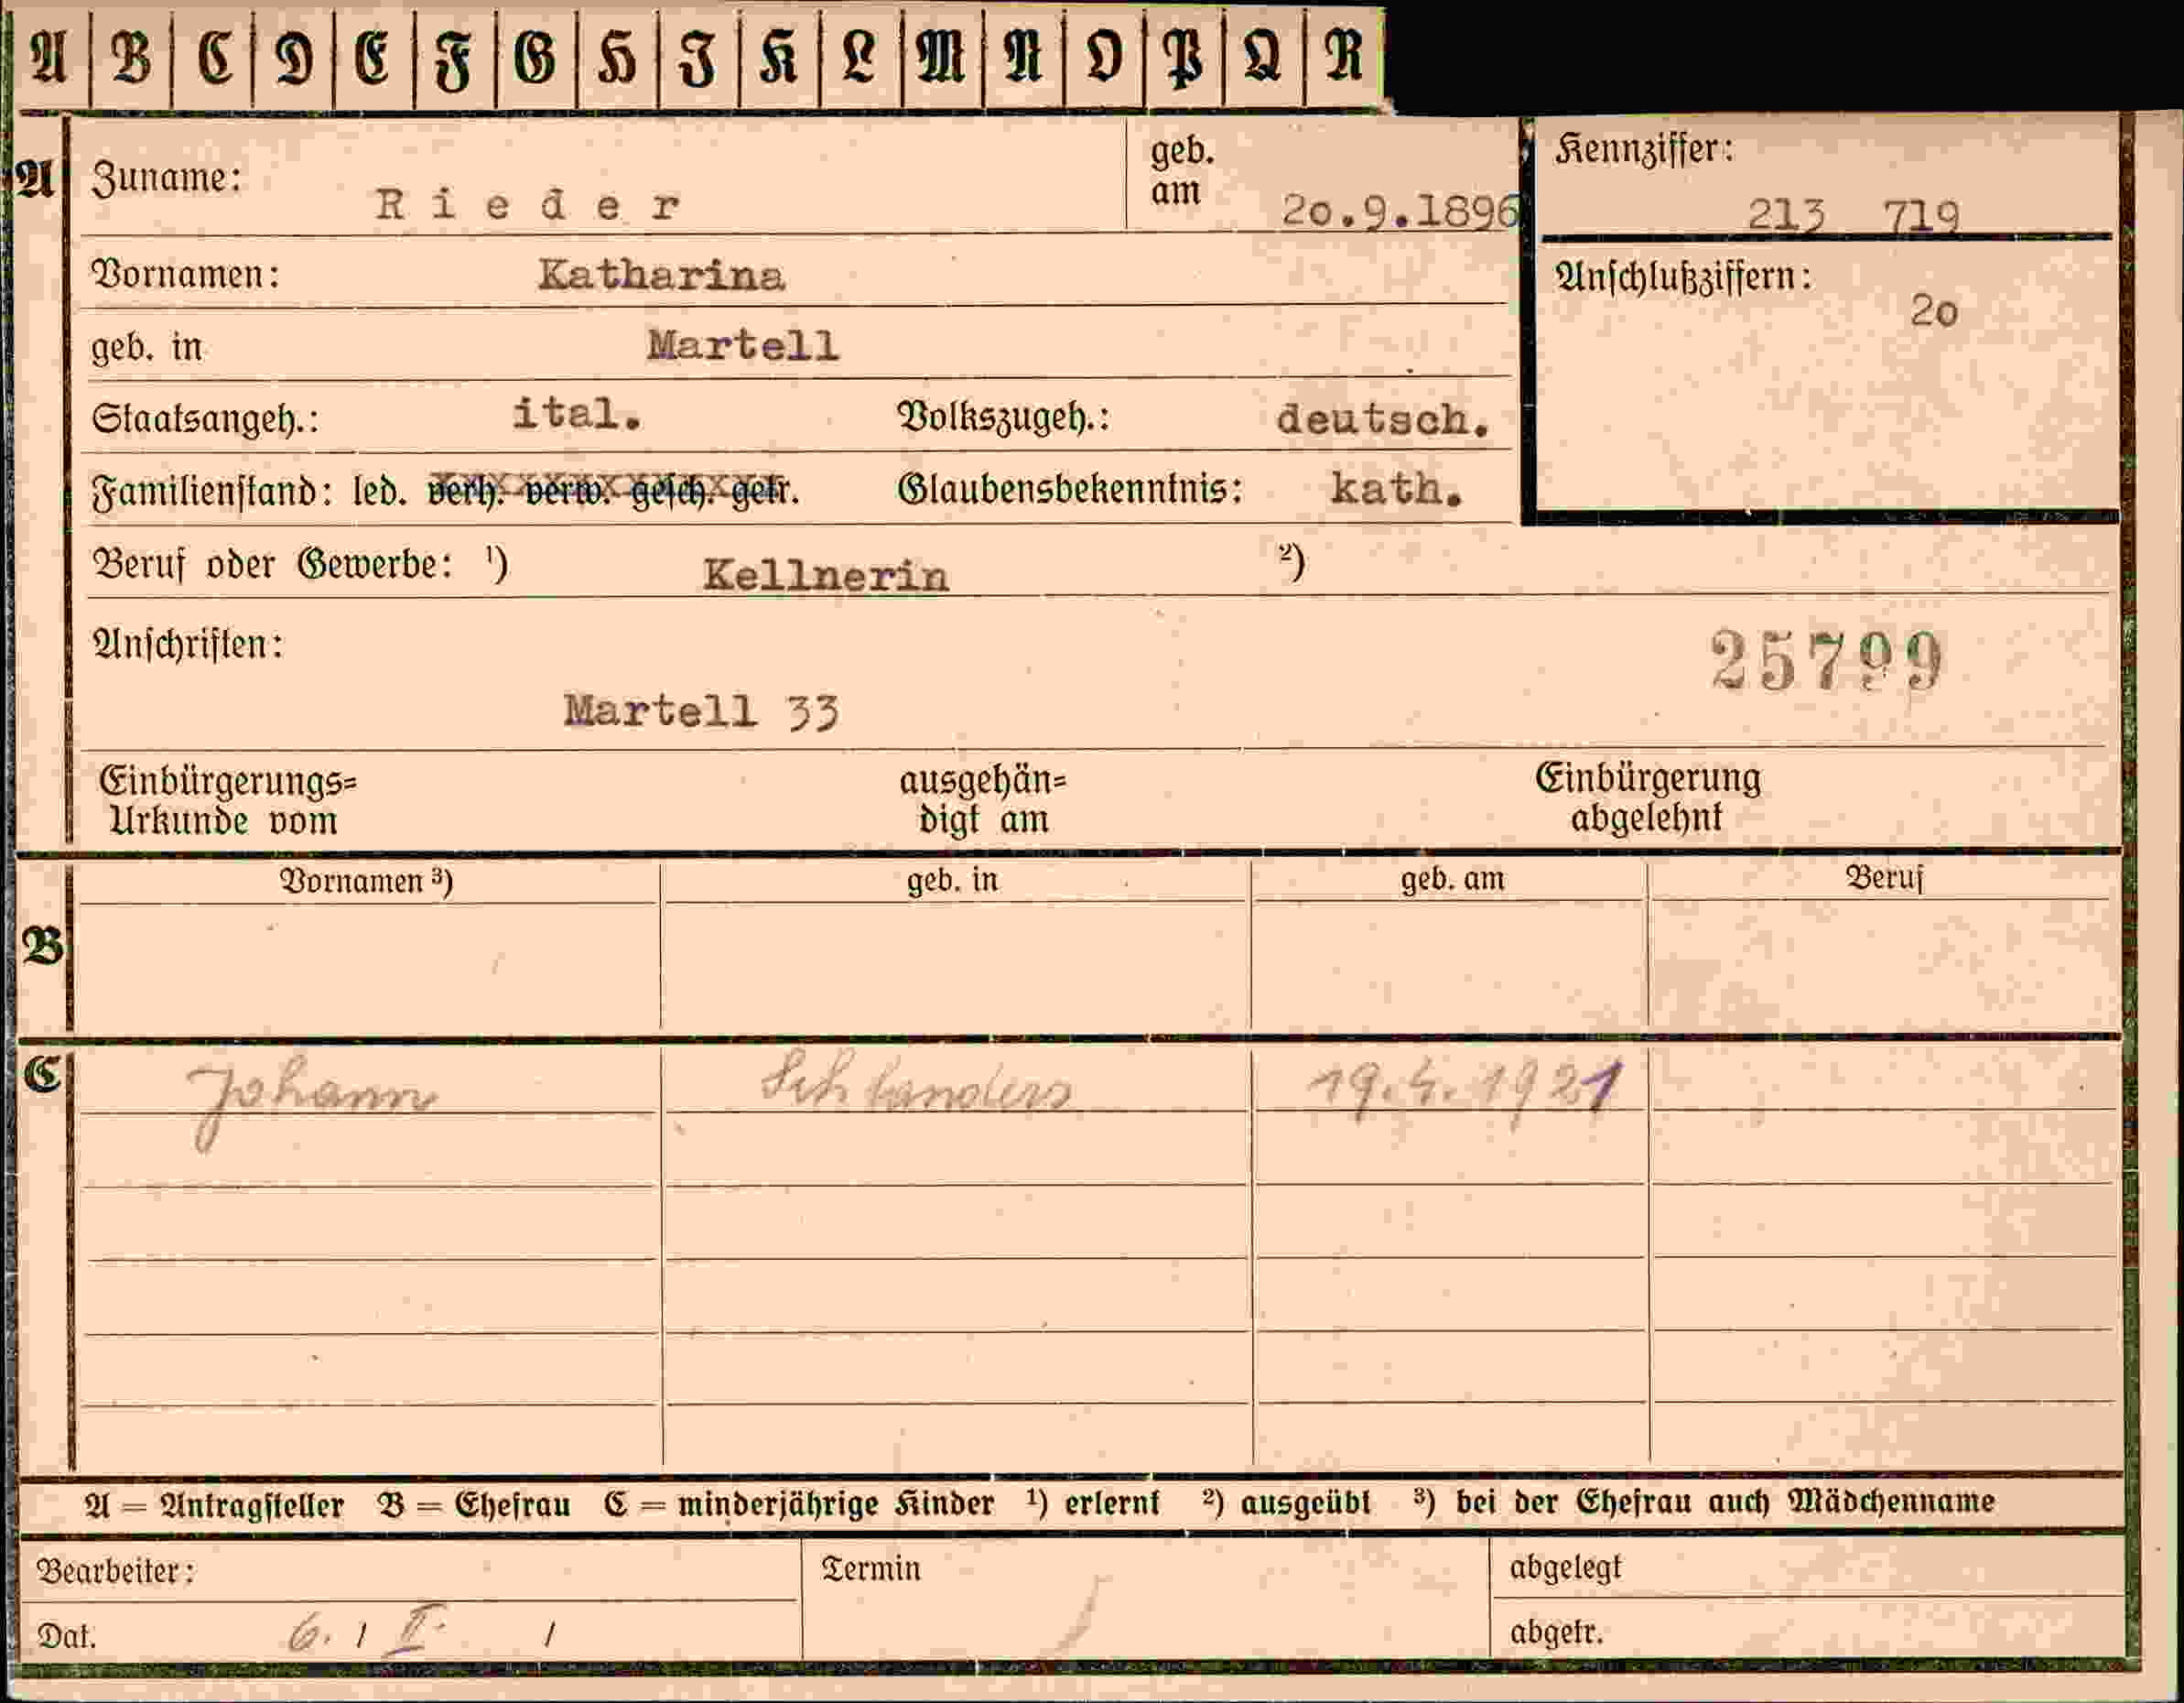 A B C D E F G H J K L M N O P Q R
A
Zuname: Rieder geb. am 20.9.1896
Kennziffer: 213 719
Vornamen: Katharina
Anschlußziffern: 20
geb. in Martell
Staatsangeh.: ital. Volkszugeh.: deutsch.
Familienstand: led. verh. verw. gesch. getr. Glaubensbekenntnis: kath.
Beruf oder Gewerbe: ¹) Kellnerin ²)
Anschriften: 25799
Martell 33
Einbürgerungs= ausgehän= Einbürgerung
Urkunde vom digt am abgelehnt
Vornamen ³) geb. in geb. am Beruf
B
C Johann Schlanders 19.4.1921
A = Antragsteller B = Ehefrau C = minderjährige Kinder ¹) erlernt ²) ausgeübt ³) bei der Ehefrau auch Mädchenname
Bearbeiter: Termin abgelegt
Dat. 6. / II. / abgetr.